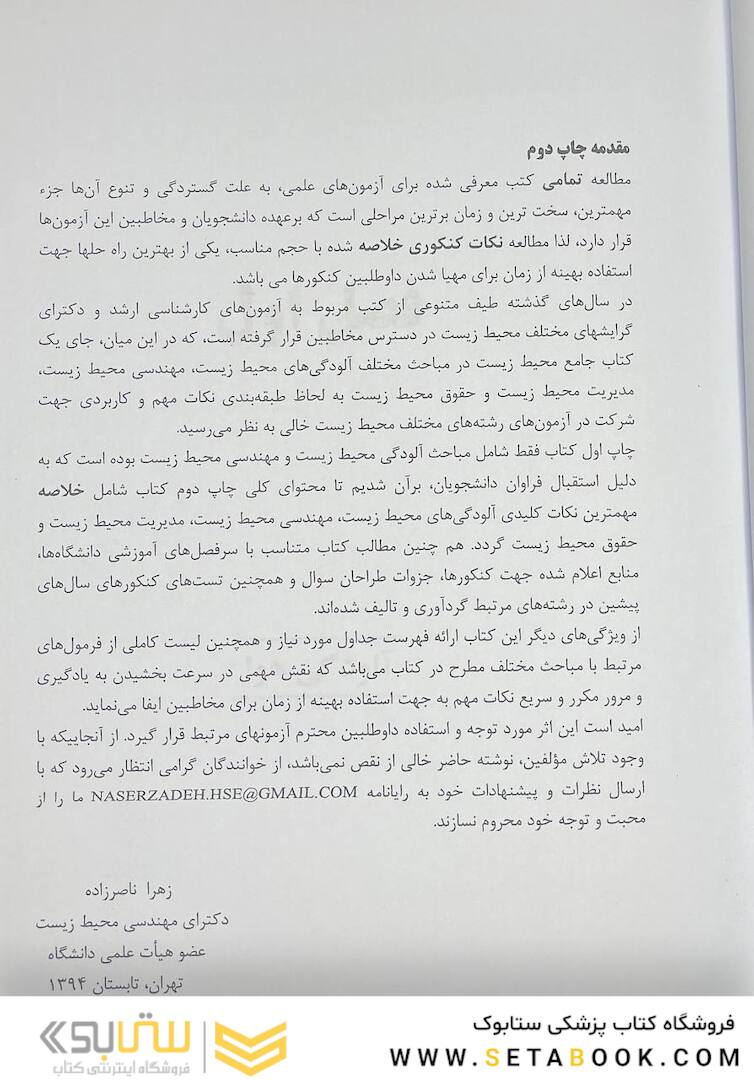 مقدمه چاپ دوم
مطالعه تمامی کتب معرفی شده برای آزمون‌های علمی، به علت گستردگی و تنوع آن‌ها جزء
مهمترین، سخت ترین و زمان برترین مراحلی است که برعهده دانشجویان و مخاطبین این آزمون‌ها
قرار دارد، لذا مطالعه نکات کنکوری خلاصه شده با حجم مناسب، یکی از بهترین راه حلها جهت
استفاده بهینه از زمان برای مهیا شدن داوطلبین کنکورها می باشد.
در سال‌های گذشته طیف متنوعی از کتب مربوط به آزمون‌های کارشناسی ارشد و دکترای
گرایشهای مختلف محیط زیست در دسترس مخاطبین قرار گرفته است، که در این میان، جای یک
کتاب جامع محیط زیست در مباحث مختلف آلودگی‌های محیط زیست، مهندسی محیط زیست،
مدیریت محیط زیست و حقوق محیط زیست به لحاظ طبقه‌بندی نکات مهم و کاربردی جهت
شرکت در آزمون‌های رشته‌های مختلف محیط زیست خالی به نظر می‌رسید.
چاپ اول کتاب فقط شامل مباحث آلودگی محیط زیست و مهندسی محیط زیست بوده است که به
دلیل استقبال فراوان دانشجویان، برآن شدیم تا محتوای کلی چاپ دوم کتاب شامل خلاصه
مهمترین نکات کلیدی آلودگی‌های محیط زیست، مهندسی محیط زیست، مدیریت محیط زیست و
حقوق محیط زیست گردد. هم چنین مطالب کتاب متناسب با سرفصل‌های آموزشی دانشگاه‌ها،
منابع اعلام شده جهت کنکورها، جزوات طراحان سوال و همچنین تست‌های کنکورهای سال‌های
پیشین در رشته‌های مرتبط گردآوری و تالیف شده‌اند.
از ویژگی‌های دیگر این کتاب ارائه فهرست جداول مورد نیاز و همچنین لیست کاملی از فرمول‌های
مرتبط با مباحث مختلف مطرح در کتاب می‌باشد که نقش مهمی در سرعت بخشیدن به یادگیری
و مرور مکرر و سریع نکات مهم به جهت استفاده بهینه از زمان برای مخاطبین ایفا می‌نماید.
امید است این اثر مورد توجه و استفاده داوطلبین محترم آزمونهای مرتبط قرار گیرد. از آنجاییکه با
وجود تلاش مؤلفین، نوشته حاضر خالی از نقص نمی‌باشد، از خوانندگان گرامی انتظار می‌رود که با
ارسال نظرات و پیشنهادات خود به رایانامه NASERZADEH.HSE@GMAIL.COM ما را از
محبت و توجه خود محروم نسازند.
زهرا ناصرزاده
دکترای مهندسی محیط زیست
عضو هیأت علمی دانشگاه
تهران، تابستان ۱۳۹۴
فروشگاه کتاب پزشکی ستابوک
WWW.SETABOOK.COM
ستابوک
فروشگاه اینترنتی کتاب